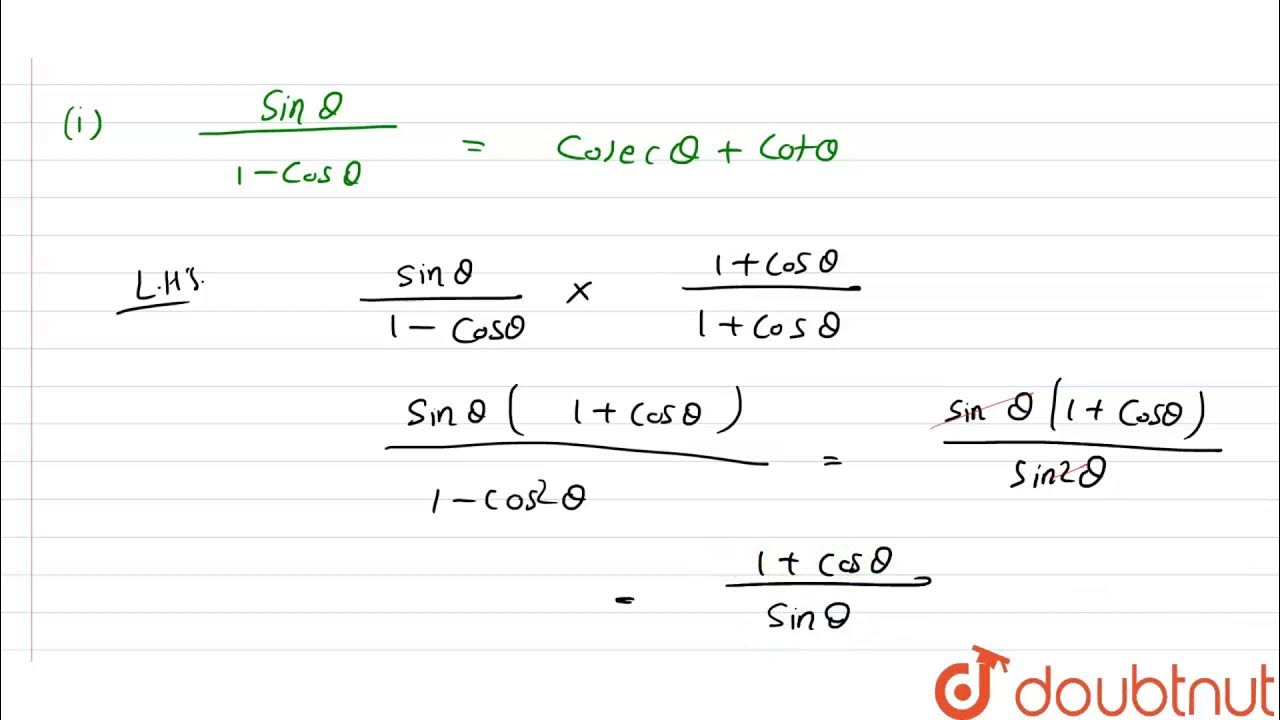 (i) Sin θ / 1 - Cos θ = Cosec θ + Cot θ
L.H.S. sin θ / 1 - Cos θ × 1 + Cos θ / 1 + Cos θ
Sin θ ( 1 + Cos θ ) / 1 - Cos²θ = sin θ (1 + Cos θ) / Sin²θ
= 1 + Cos θ / Sin θ
doubtnut